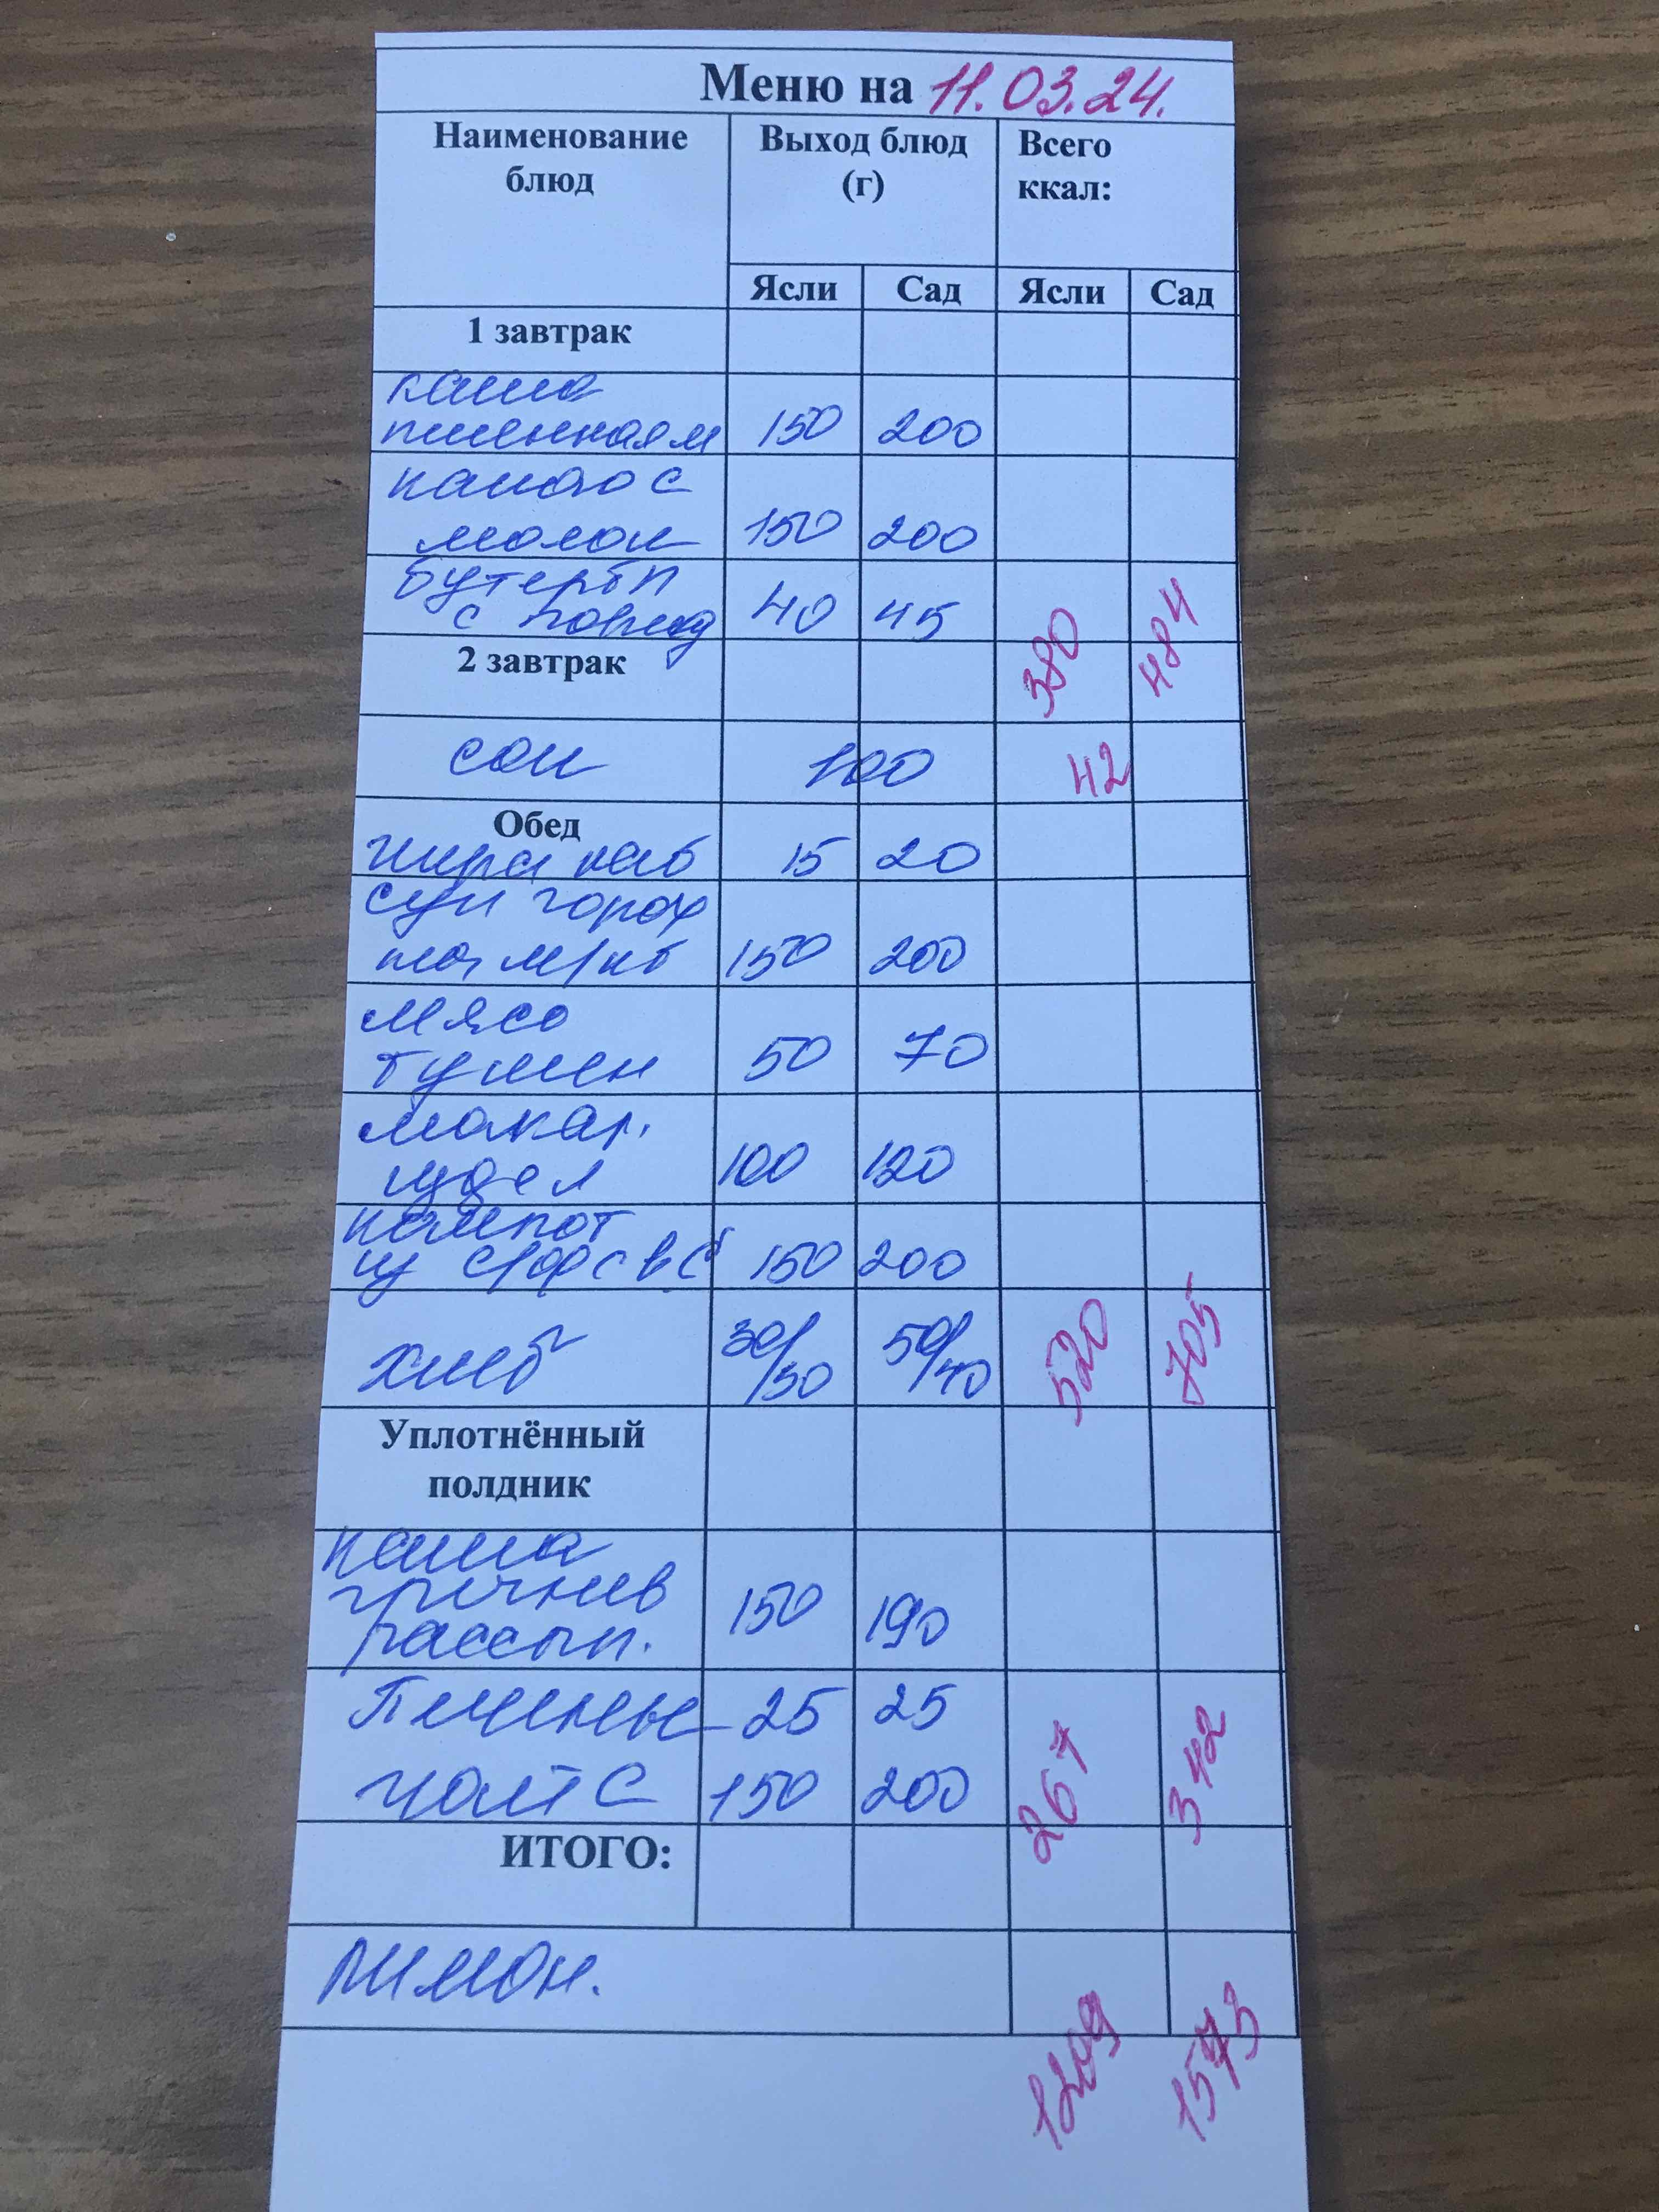 Меню на 11.03.24.
Наименование блюд
Выход блюд (г)
Всего ккал:
Ясли Сад Ясли Сад
1 завтрак
каша
пшенная м 150 200
какао с
молок 150 200
бутерб п
с повид 40 45 380 484
2 завтрак
сок 100 42
Обед
икра каб 15 20
суп горох
на м/кб 150 200
мясо
тушен 50 70
макар.
издел 100 120
компот
из с/ф с в С 150 200
хлеб 30/50 50/40 520 705
Уплотнённый
полдник
каша
гречнев
рассып. 150 190
Печенье 25 25
чай с 150 200 267 342
ИТОГО:
лимон. 1209 1573